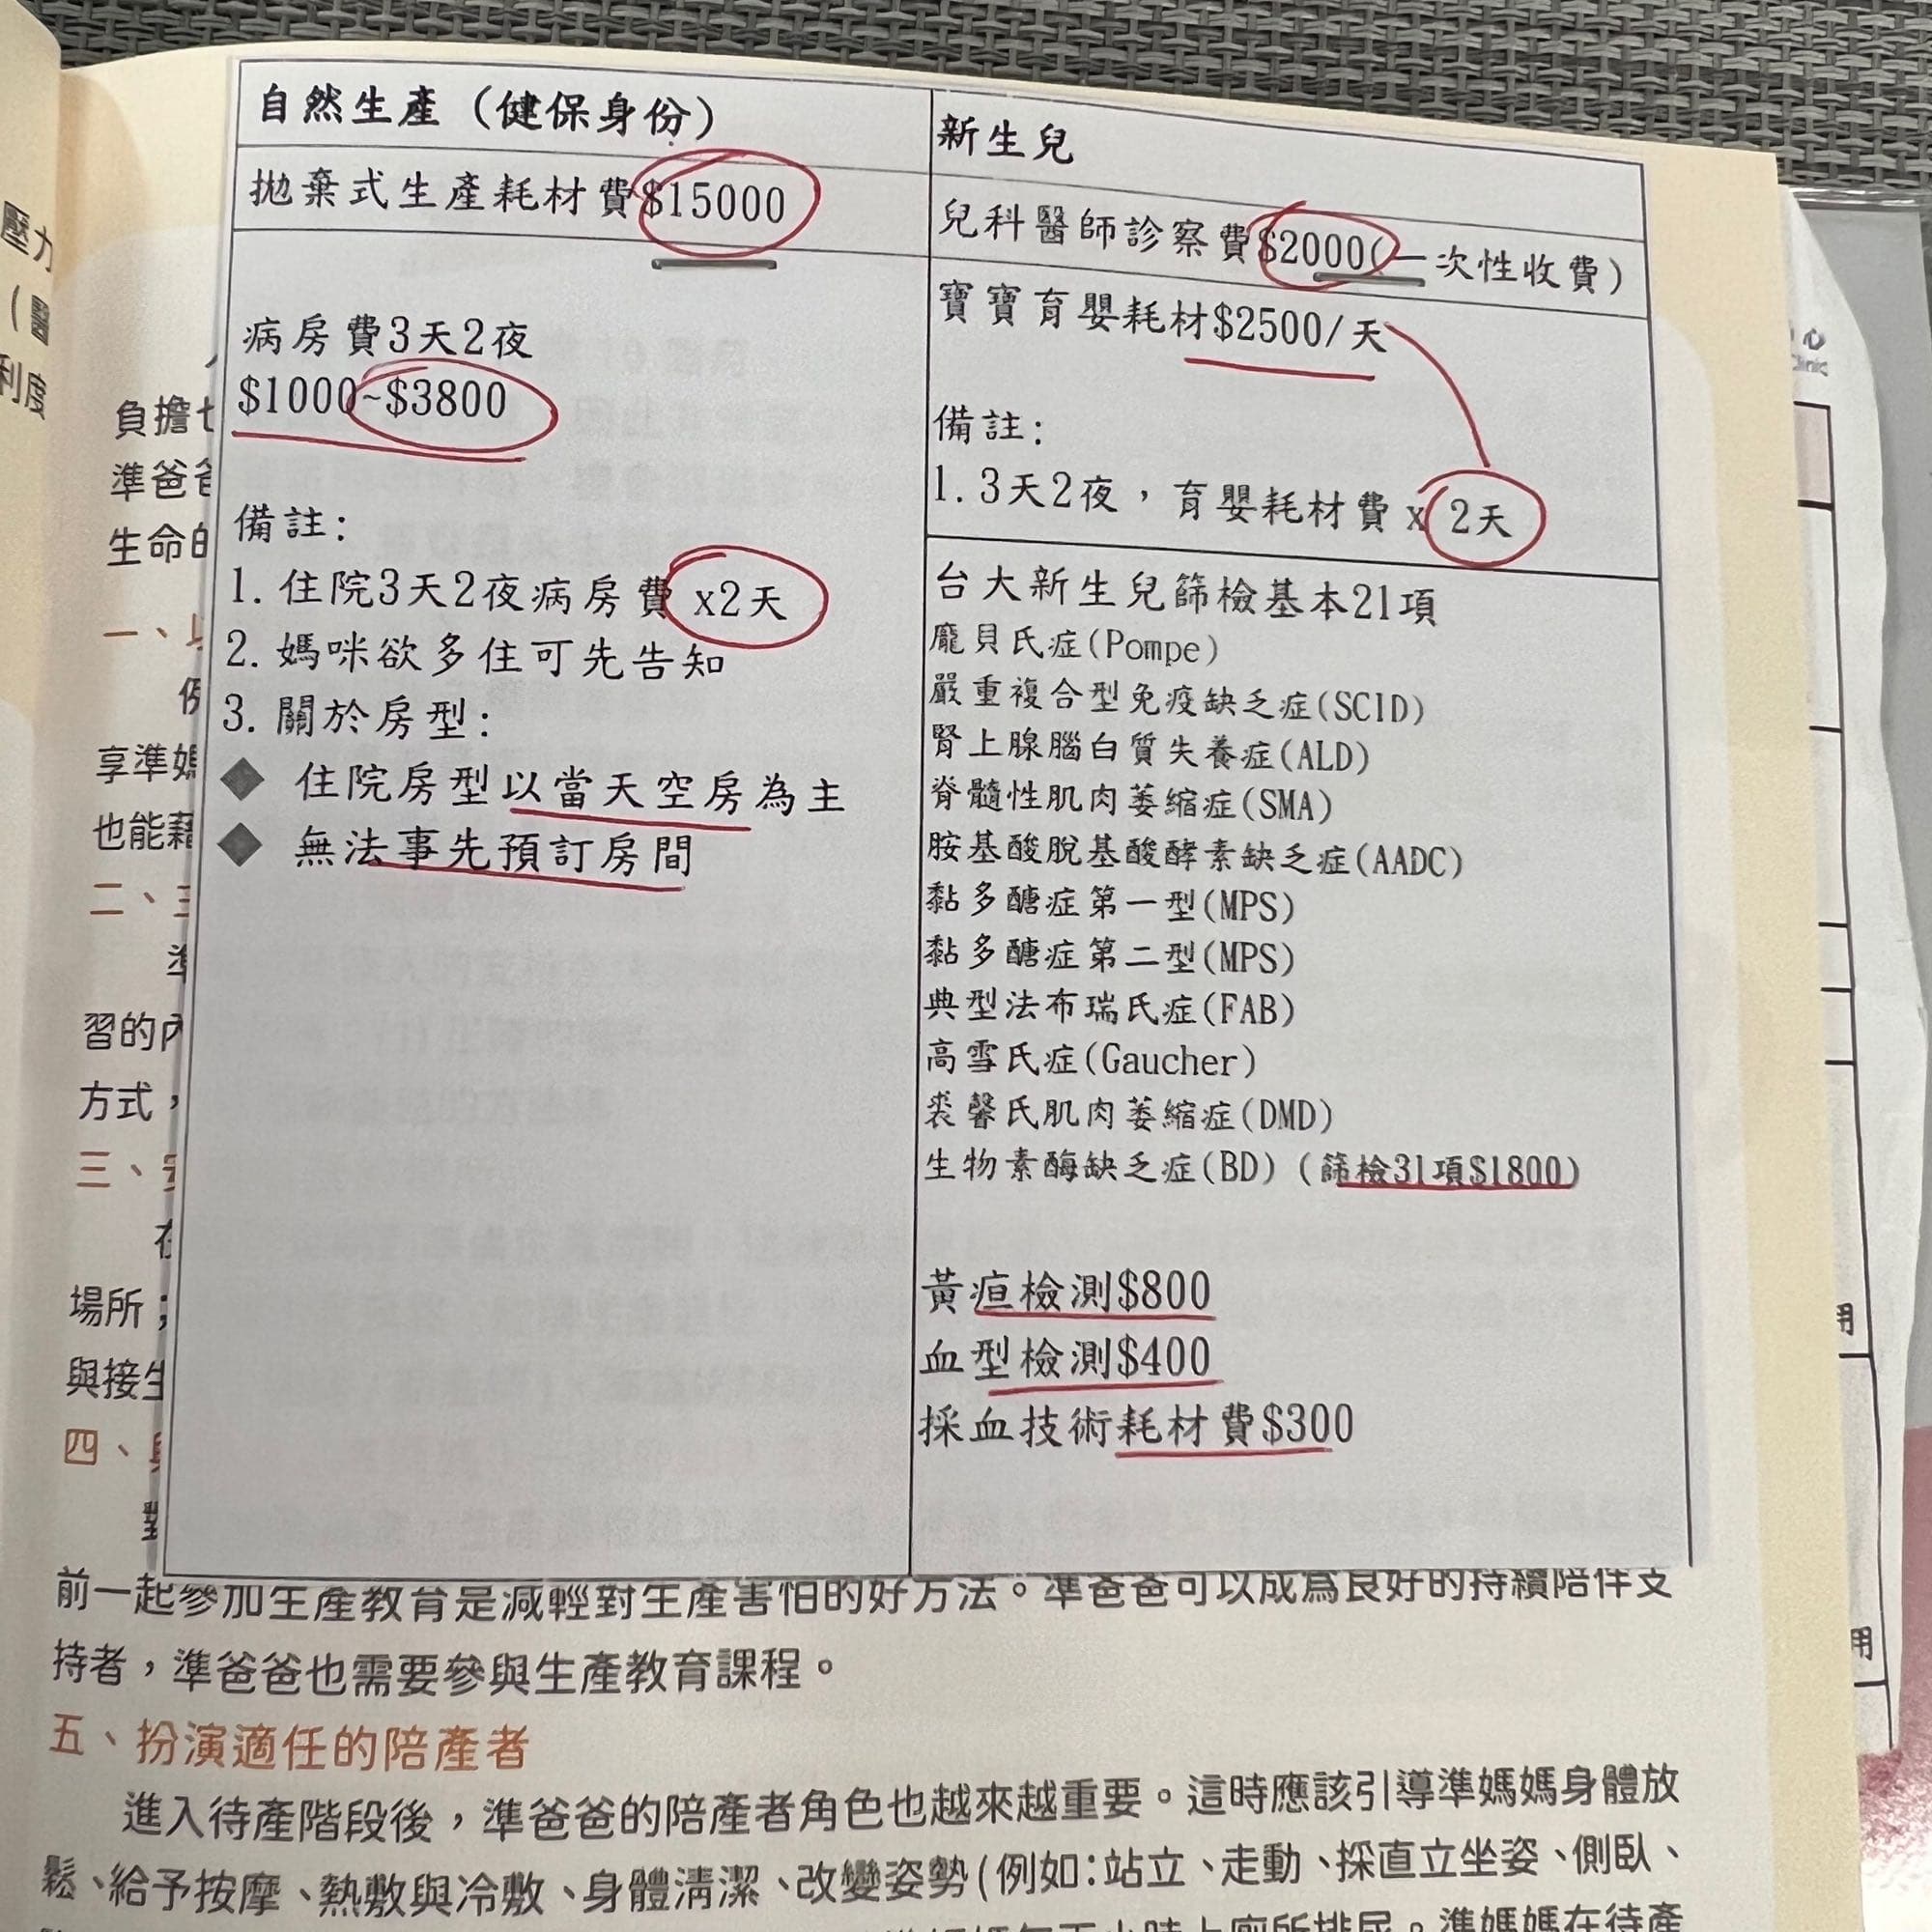 自然生產（健保身份）
拋棄式生產耗材費$15000
病房費3天2夜
$1000~$3800
備註:
1. 住院3天2夜病房費 x2天
2. 媽咪欲多住可先告知
3. 關於房型:
◆ 住院房型以當天空房為主
◆ 無法事先預訂房間
新生兒
兒科醫師診察費$2000(一次性收費)
寶寶育嬰耗材$2500/天
備註:
1. 3天2夜，育嬰耗材費 x 2天
台大新生兒篩檢基本21項
龐貝氏症(Pompe)
嚴重複合型免疫缺乏症(SCID)
腎上腺腦白質失養症(ALD)
脊髓性肌肉萎縮症(SMA)
胺基酸脫基酸酵素缺乏症(AADC)
黏多醣症第一型(MPS)
黏多醣症第二型(MPS)
典型法布瑞氏症(FAB)
高雪氏症(Gaucher)
裘馨氏肌肉萎縮症(DMD)
生物素酶缺乏症(BD)（篩檢31項$1800）
黃疸檢測$800
血型檢測$400
採血技術耗材費$300
壓力
（醫
利度
負擔
準爸爸
生命的
一、
享準媽
也能藉
二、
準
習的
方式，
三、
在
場所；
與接生
四、
對
前一起參加生產教育是減輕對生產害怕的好方法。準爸爸可以成為良好的持續陪伴支
持者，準爸爸也需要參與生產教育課程。
五、扮演適任的陪產者
進入待產階段後，準爸爸的陪產者角色也越來越重要。這時應該引導準媽媽身體放
鬆、給予按摩、熱敷與冷敷、身體清潔、改變姿勢(例如:站立、走動、採直立坐姿、側臥、
上廁所排尿。準媽媽在待產
心
Clinic
用
用